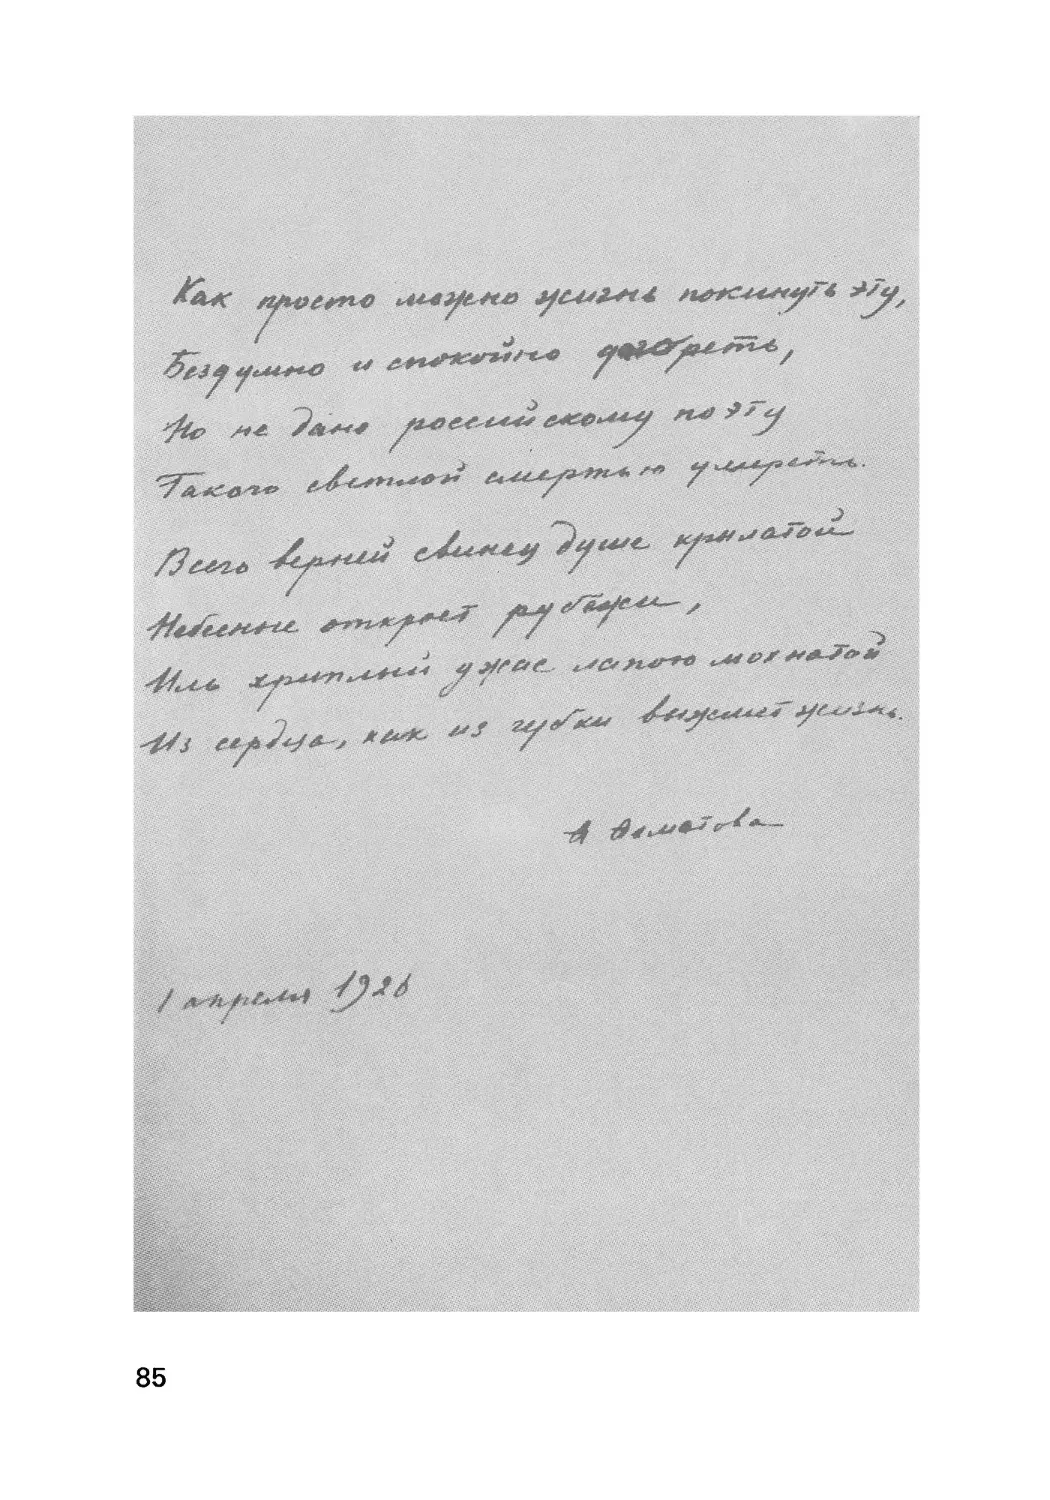 Как просто можно жизнь покинуть эту,
Бездумно и спокойно догореть,
Но не дано российскому поэту
Такою светлой смертью умереть.
Всего верней свинец душе крылатой
Небесные откроет рубежи,
Иль хриплый ужас лапою мохнатой
Из сердца, как из губки выжмет жизнь.
А Ахматова
1 апреля 1926
85